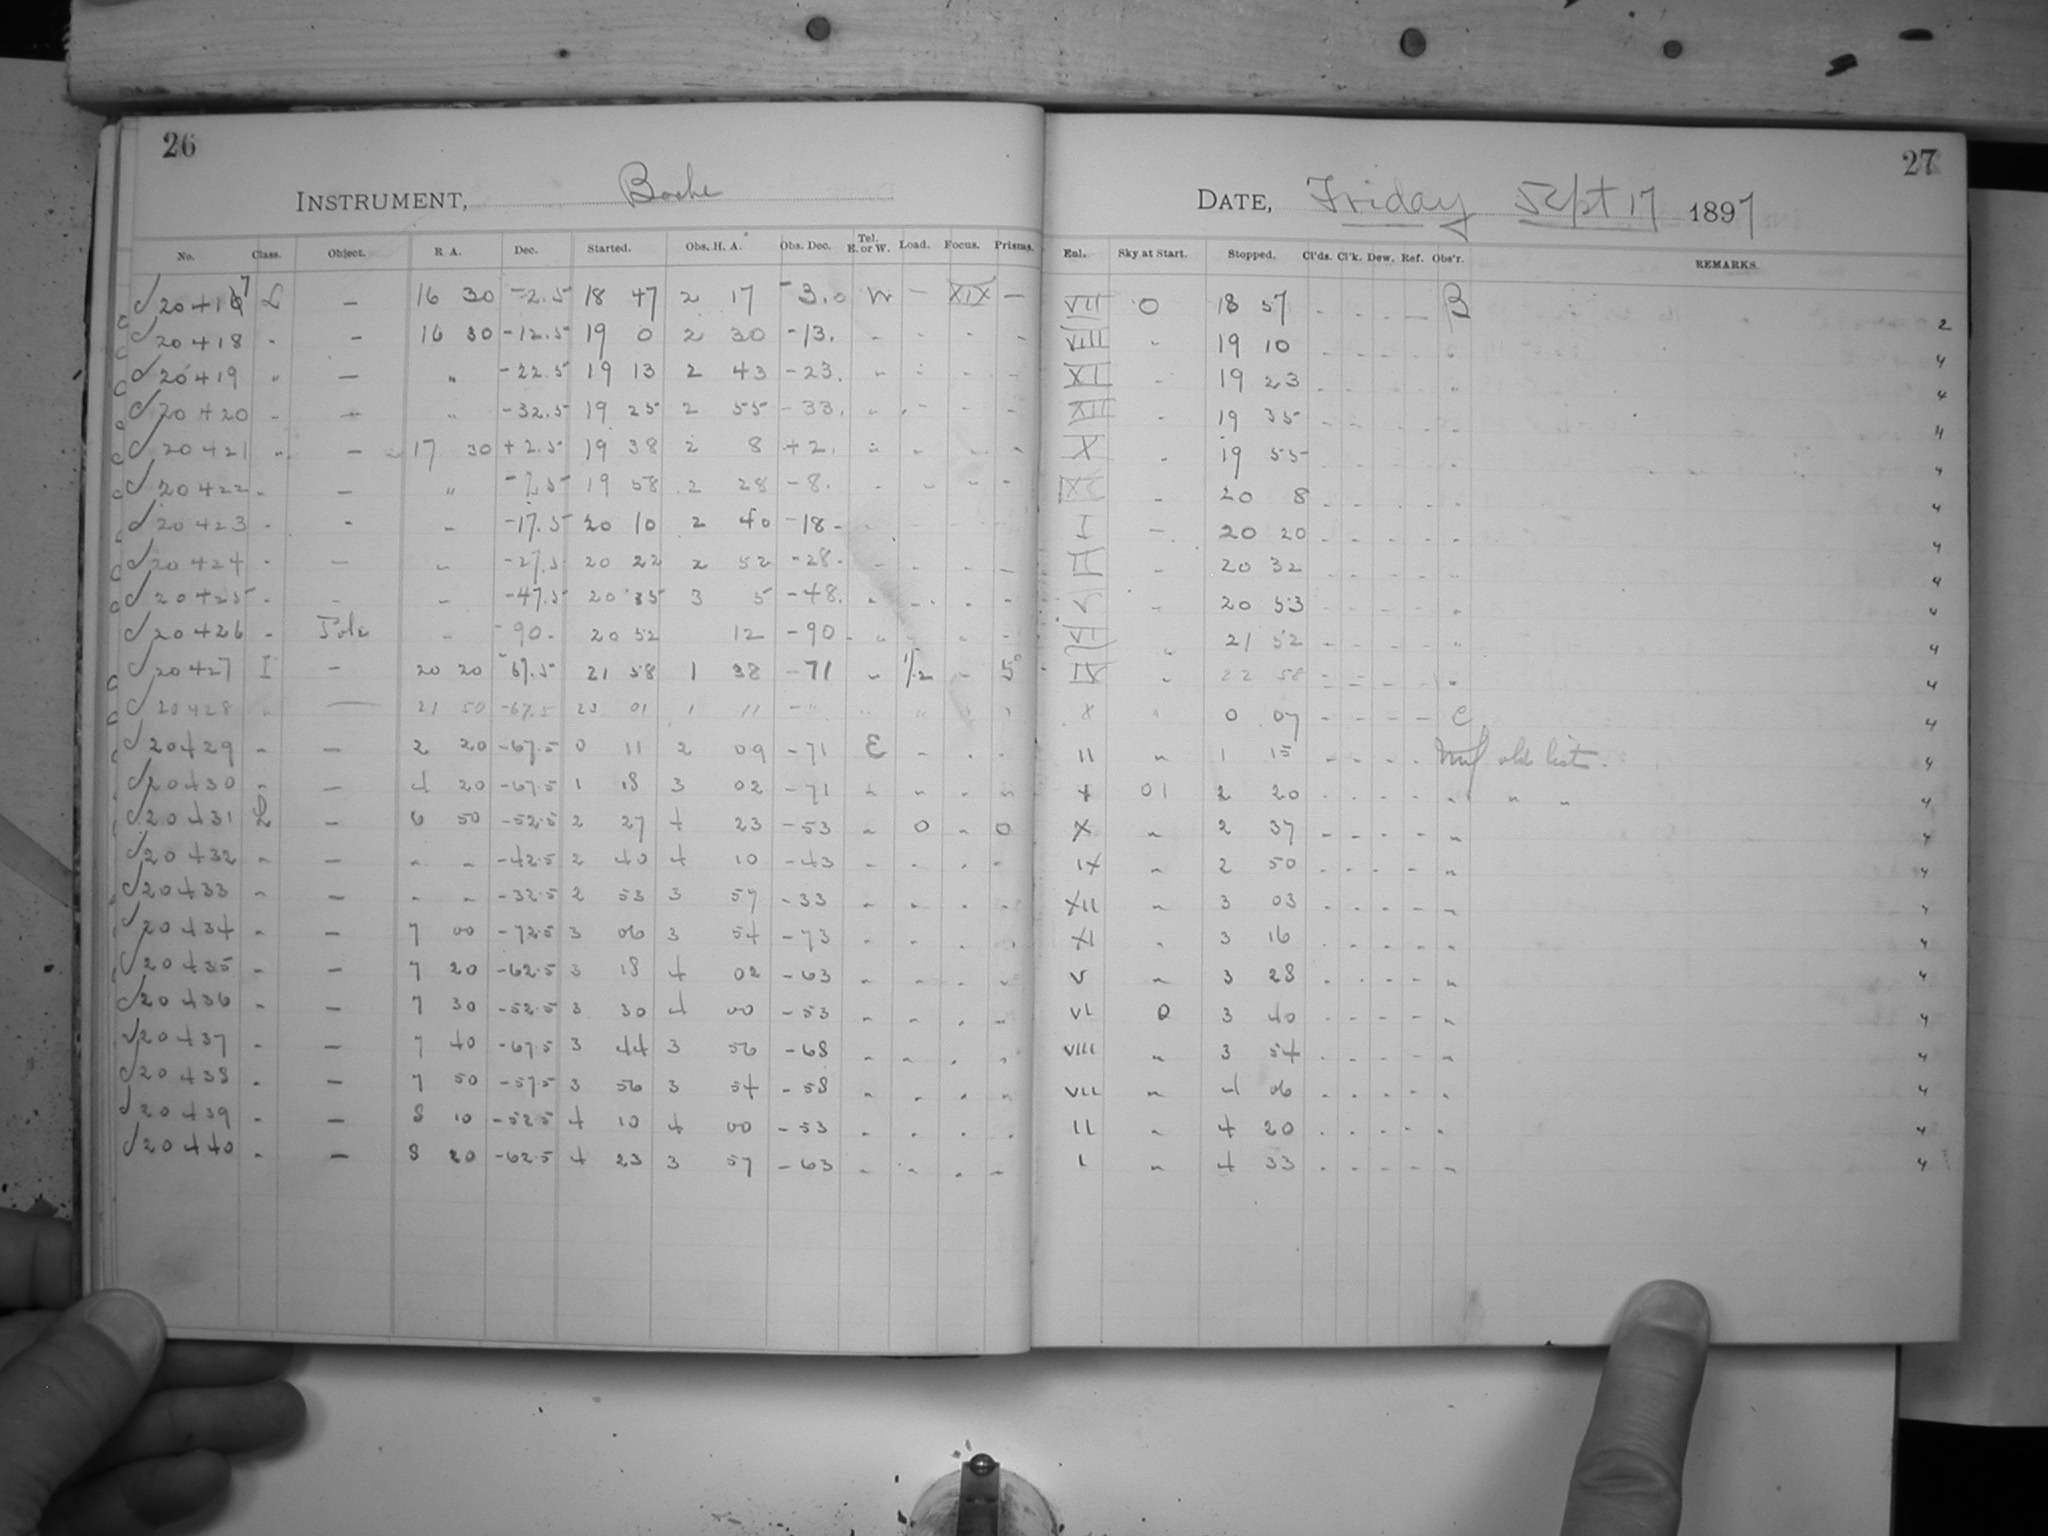 26
INSTRUMENT, Bache
No. Class. Object. R. A. Dec. Started. Obs. H. A. Obs. Dec. Tel. E. or W. Load. Focus. Prisms.
20417 L - 16 30 -2.5 18 47 2 17 -3.0 W - XIX -
20418 " - 16 30 -12.5 19 0 2 30 -13. " " " "
20419 " - " -22.5 19 13 2 43 -23. " " " "
20420 " - " -32.5 19 25 2 55 -33. " " " "
20421 " - 17 30 +2.5 19 38 2 8 +2. " " " "
20422 " - " -7.5 19 58 2 28 -8. " " " "
20423 " - " -17.5 20 10 2 40 -18.
20424 " - " -27.5 20 22 2 52 -28. " " " "
20425 " - " -47.5 20 35 3 5 -48. " " " "
20426 " Pole " -90. 20 52 12 -90 " " " "
20427 I - 20 20 -67.5 21 58 1 38 -71 " 1/2 " 5°
20428 " - 21 50 -67.5 23 01 1 11 - " " " " "
20429 " - 2 20 -67.5 0 11 2 09 -71 E " " "
20430 " - 4 20 -67.5 1 18 3 02 -71 " " " "
20431 L - 6 50 -52.5 2 27 4 23 -53 " 0 " 0
20432 " - " " -42.5 2 40 4 10 -43 " " " "
20433 " - " " -32.5 2 53 3 57 -33 " " " "
20434 " - 7 00 -72.5 3 06 3 54 -73 " " " "
20435 " - 7 20 -62.5 3 18 4 02 -63 " " " "
20436 " - 7 30 -52.5 3 30 4 00 -53 " " " "
20437 " - 7 40 -67.5 3 44 3 56 -68 " " " "
20438 " - 7 50 -57.5 3 56 3 54 -58 " " " "
20439 " - 8 10 -52.5 4 10 4 00 -53 " " " "
20440 " - 8 20 -62.5 4 23 3 57 -63 " " " "
27
DATE, Friday Sept 17 1897
Enl. Sky at Start. Stopped. Cl'ds. Cl'k. Dew. Ref. Obs'r. REMARKS.
VII 0 18 57 - - - - B 2
VIII " 19 10 - - - - " 4
XI " 19 23 - - - - " 4
XII " 19 35 - - - - " 4
X " 19 55 - - - - " 4
" 20 8 - - - - " 4
I " 20 20 - - - - " 4
II " 20 32 - - - - " 4
V " 20 53 - - - - " 4
VI " 21 52 - - - - " 4
IX " 22 58 - - - - " 4
X " 0 07 - - - - C 4
II " 1 15 - - - - old list. 4
X 01 2 20 - - - - " " " 4
X " 2 37 - - - - " 4
IX " 2 50 - - - - " 4
XII " 3 03 - - - - " 4
XI " 3 16 - - - - " 4
V " 3 28 - - - - " 4
VI 0 3 40 - - - - " 4
VIII " 3 54 - - - - " 4
VII " 4 06 - - - - " 4
II " 4 20 - - - - " 4
I " 4 33 - - - - " 4